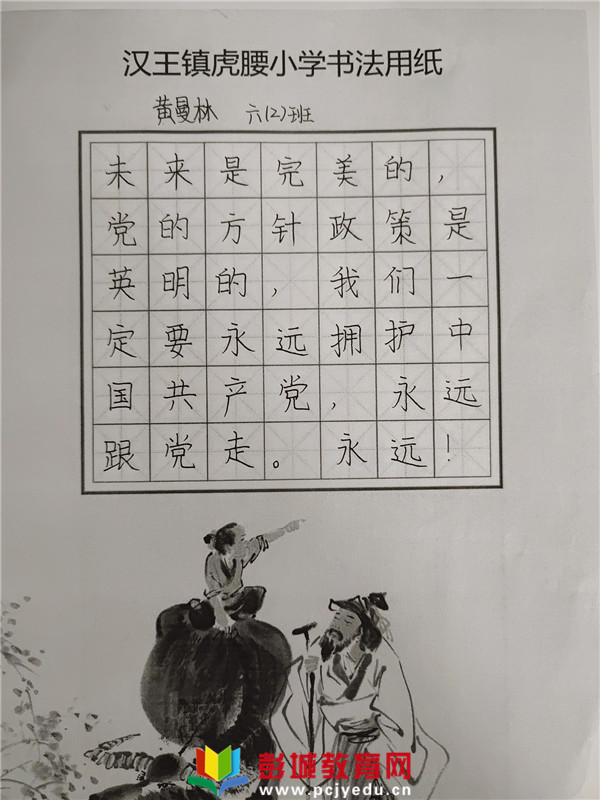 汉王镇虎腰小学书法用纸
黄曼林 六(2)班
未来是完美的，
党的方针政策是
英明的，我们一
定要永远拥护中
国共产党，永远
跟党走。永远！
彭城教育网
www.pcjyedu.cn